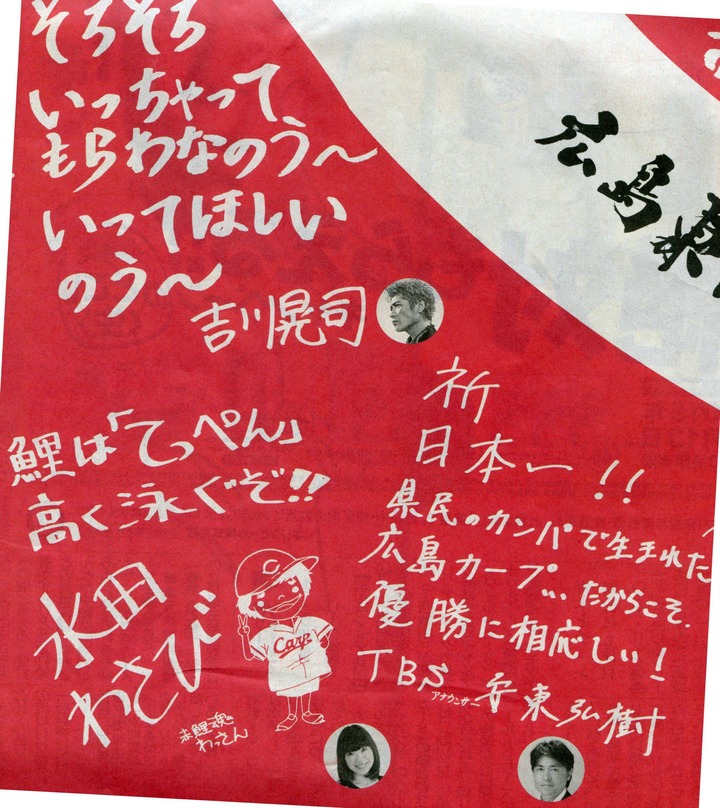 そろそろ
いっちゃって
もらわなのう〜
いってほしい
のう〜
吉川晃司
広島県
鯉は「てっぺん」
高く泳ぐぞ!!
水田
わさび
Carp
赤鯉魂
わっさん
祈
日本一!!
県民のカンパで生まれた
広島カープ...だからこそ、
優勝に相応しい!
TBSアナウンサー 安東弘樹